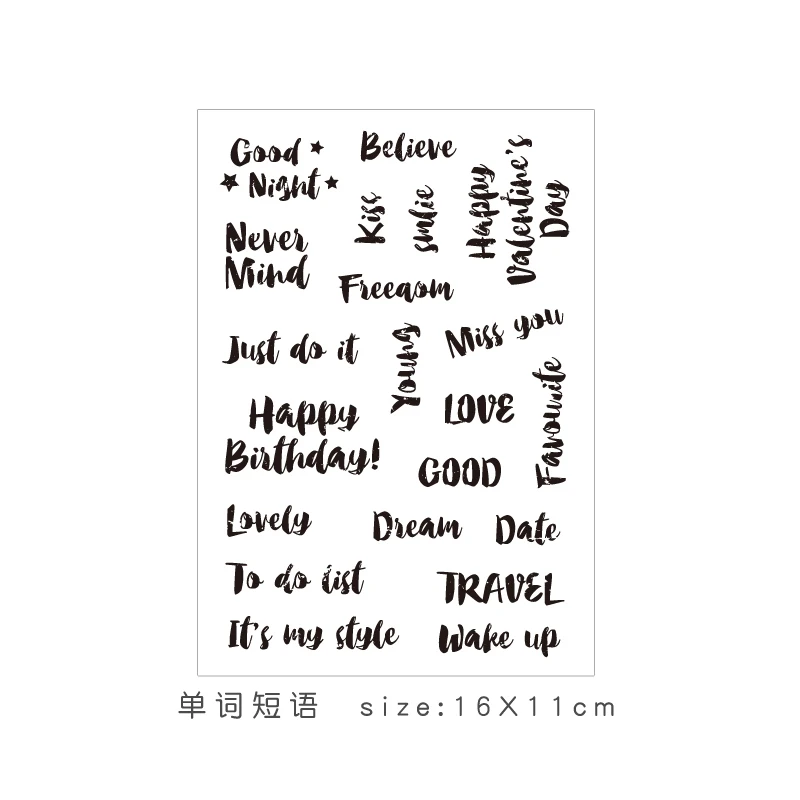 Good
Night
Believe
Kiss
smlie
Happy
Valentine's
Day
Never
Mind
Freeaom
Just do it
Young
Miss you
Happy
Birthday!
LOVE
Favourite
GOOD
Lovely
Dream
Date
To do list
TRAVEL
It's my style
Wake up
单词短语 size:16X11cm